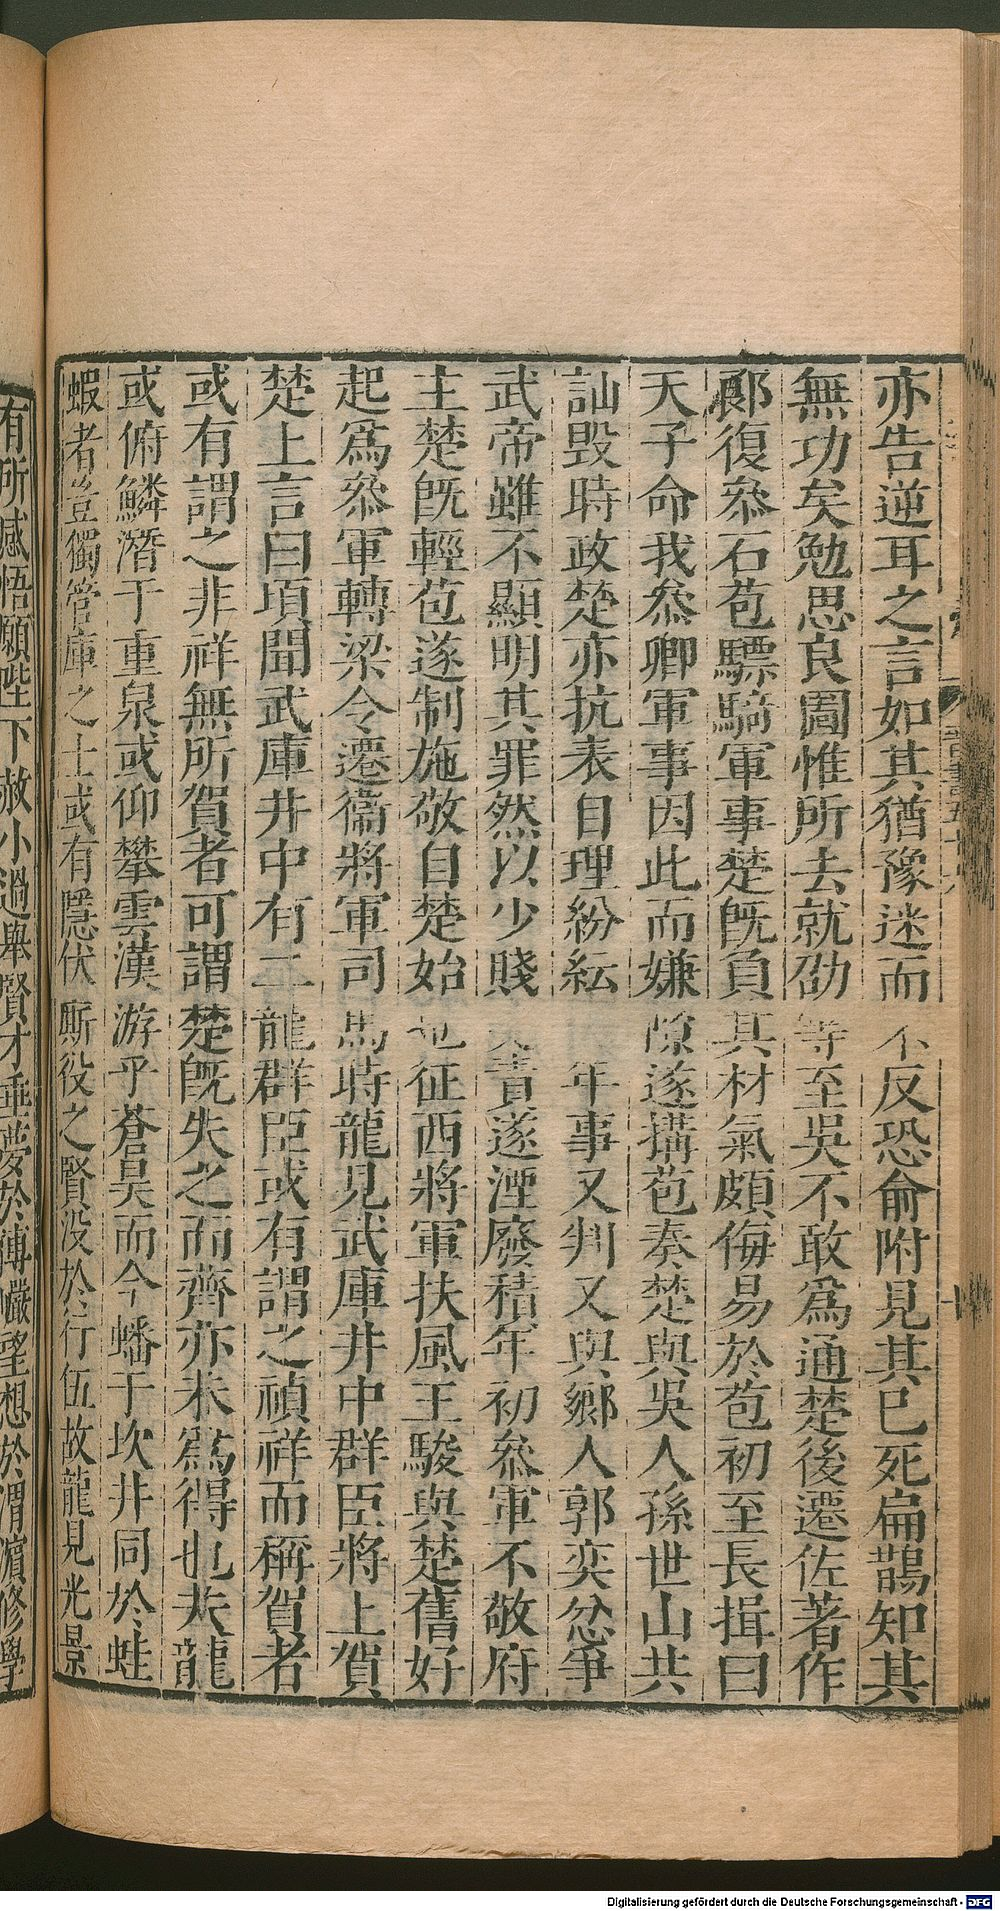 亦告逆耳之言如其猶豫迷而不反恐俞附見其已死扁鵲知其
無功矣勉思良圖惟所去就劭等至吳不敢爲通楚後遷佐著作
郞復叅石苞驃騎軍事楚旣負其材氣頗侮易於苞初至長揖曰
天子命我叅卿軍事因此而嫌隙遂搆苞奏楚與吳人孫世山共
訕毀時政楚亦抗表自理紛紜年事又判又與鄉人郭奕忿爭
武帝雖不顯明其罪然以少賤責遂湮廢積年初叅軍不敬府
主楚旣輕苞遂制施敬自楚始也征西將軍扶風王駿與楚舊好
起爲叅軍轉梁令遷衞將軍司馬時龍見武庫井中群臣將上賀
楚上言曰頃聞武庫井中有二龍群臣或有謂之禎祥而稱賀者
或有謂之非祥無所賀者可謂楚旣失之而齊亦未爲得也夫龍
或俯鱗潛于重泉或仰攀雲漢游乎蒼昊而今蟠于坎井同於蛙
蝦者豈獨管庫之士或有隱伏廝役之賢没於行伍故龍見光景
有所感悟願陛下赦小過舉賢才垂夢於傅巖望想於渭濱修學
Digitalisierung gefördert durch die Deutsche Forschungsgemeinschaft - DFG